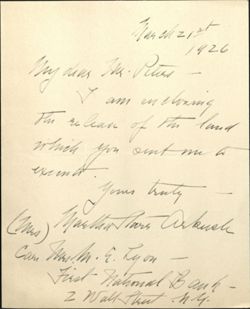 March 21st
1926
My dear Mr. Peters —
I am enclosing
the release of the land
which you sent me to
execute.
Yours truly —
(Mrs) Martha
Care Mrs M. E. Lyon —
First National Bank —
2 Wall Street N.Y.